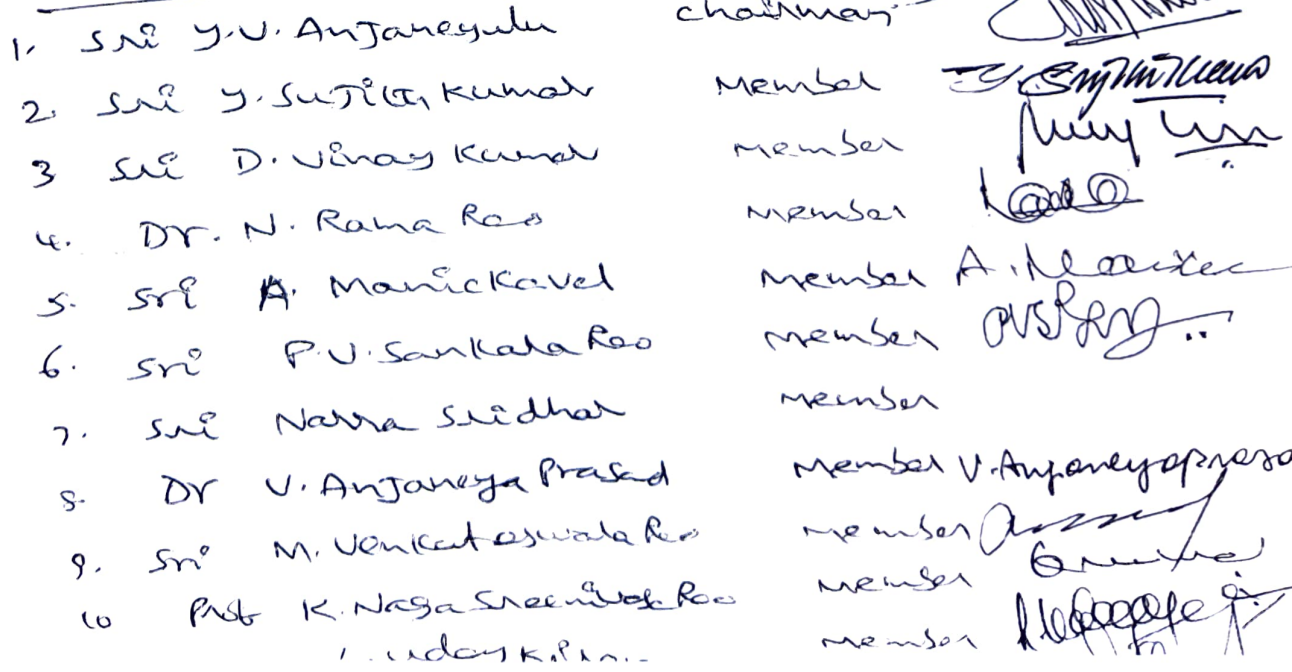 1. Sri Y.V. Anjaneyulu chairman
2. Sri Y. Sujith Kumar Member Y. Sujith Kumar
3 Sri D. Vinay Kumar Member
4. Dr. N. Rama Rao Member
5. Sri A. Manickavel Member A. Manickavel
6. Sri P.V. Sankara Rao Member
7. Sri Narra Sridhar Member
8. Dr V. Anjaneya Prasad Member V. Anjaneyaprasa
9. Sri M. Venkateswara Rao Member
10 Prof K. Naga Sreenivasa Rao Member
Member